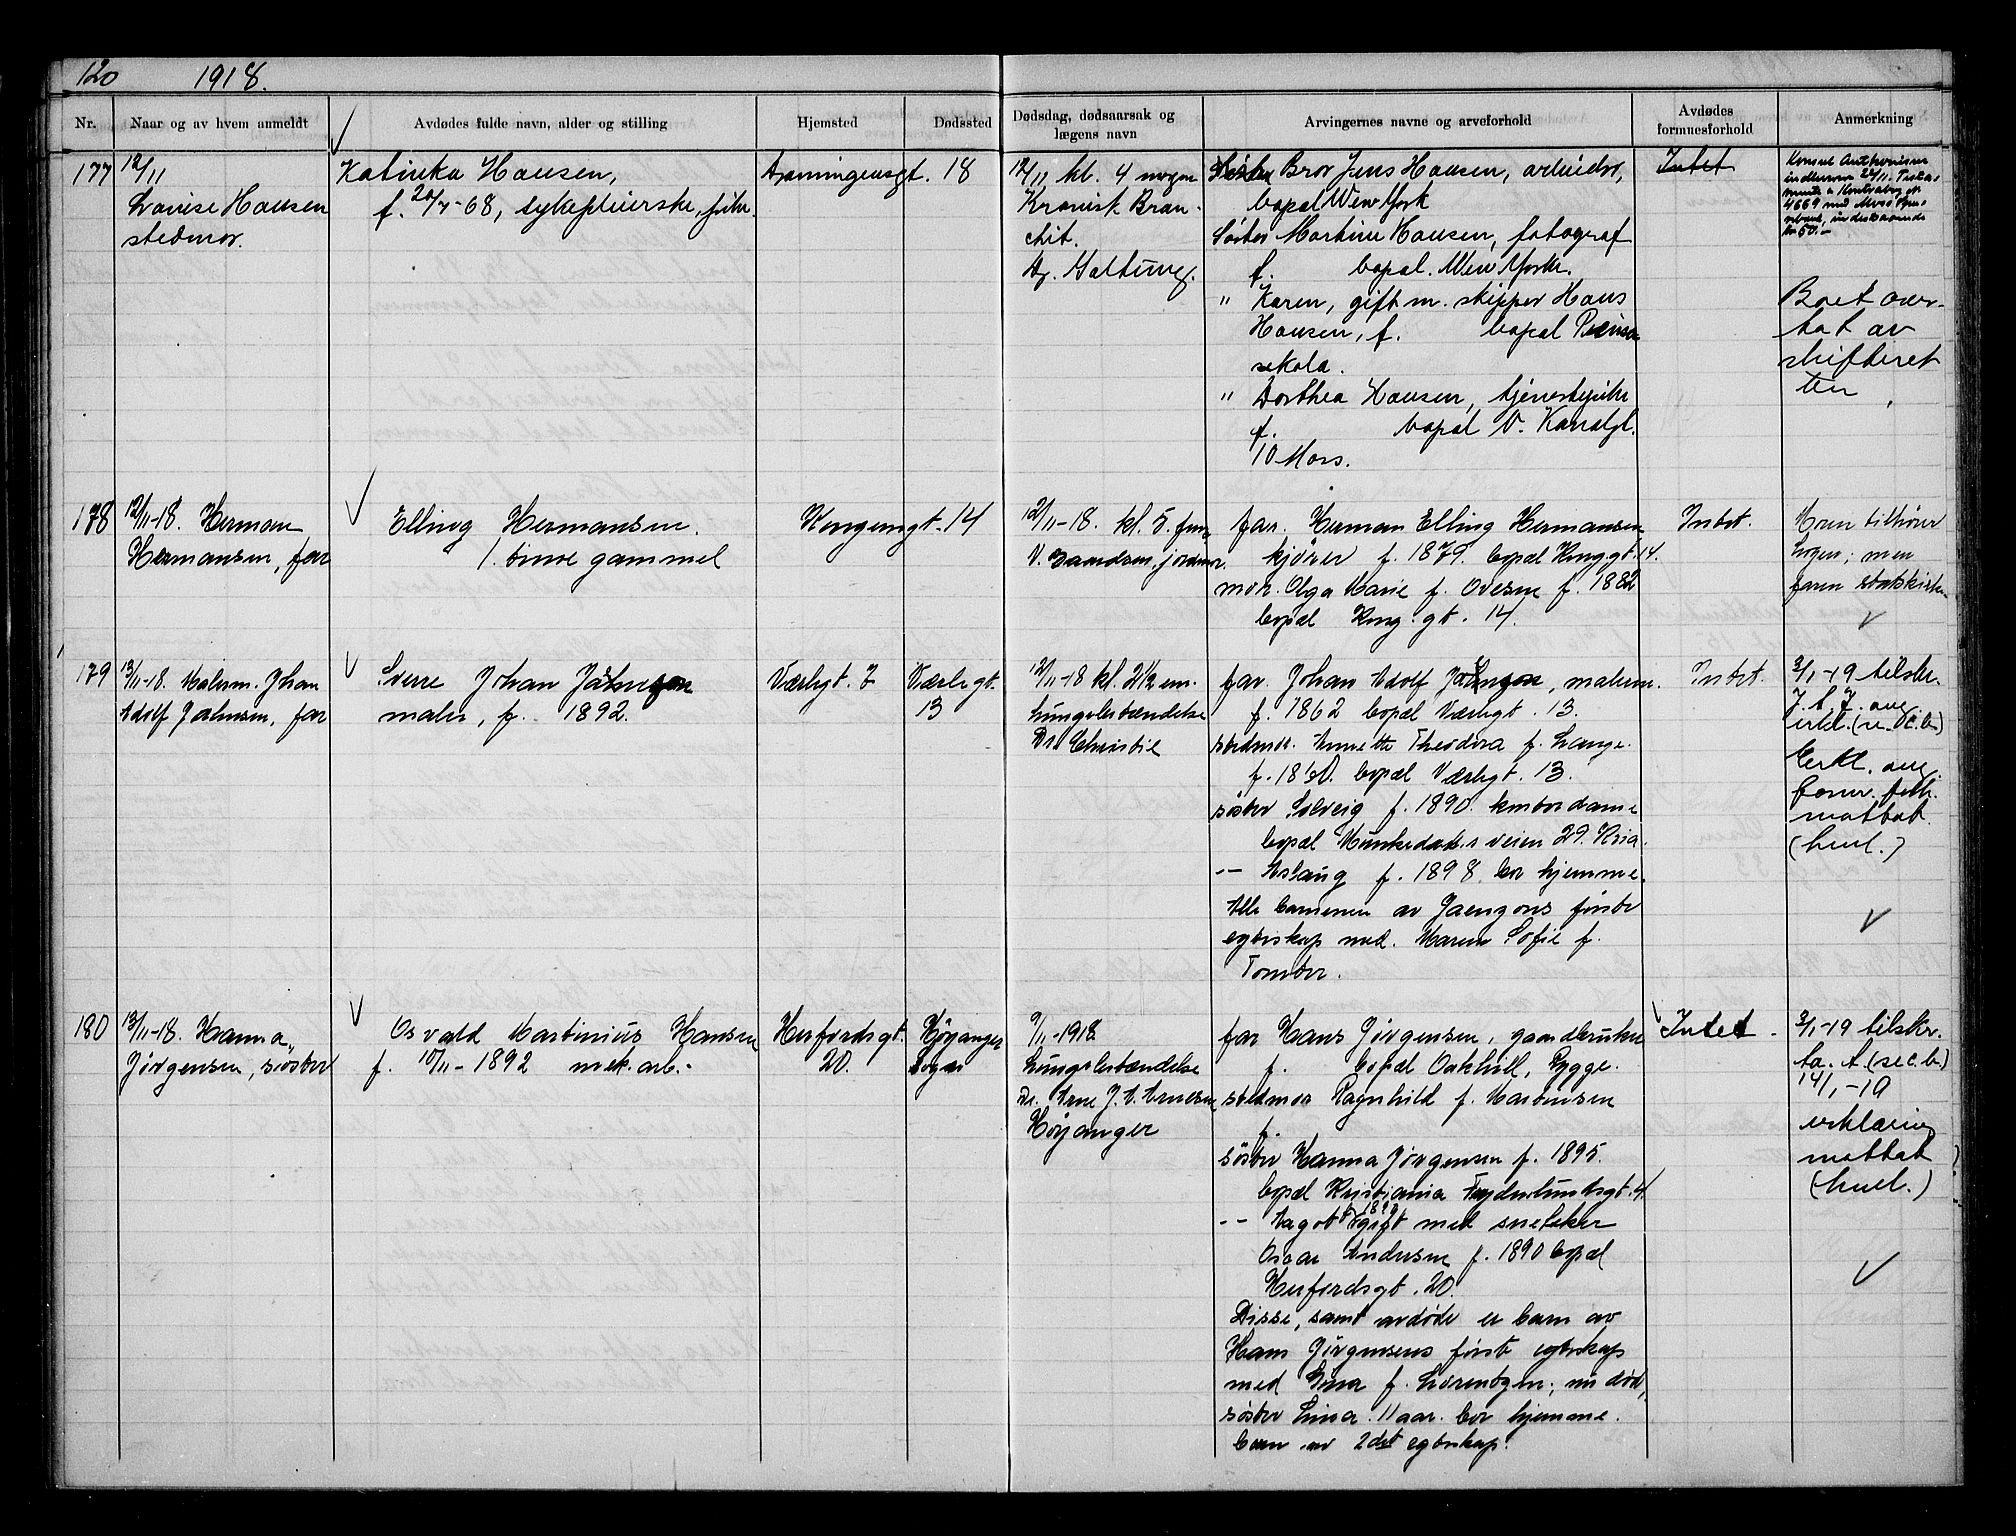 120 1918.
Nr.
Naar og av hvem anmeldt
Avdødes fulde navn, alder og stilling
Hjemsted
Dødssted
Dødsdag, dødsaarsak og
lægens navn
Arvingernes navne og arveforhold
Avdødes
formuesforhold
Anmerkning
177
12/11
Lovise Hansen
stedmor.
Katinka Hansen,
f. -68, sykepleierske,
Dronningensgt. 18
12/11 kl. 4 morgen
Kronisk Bron-
chit.
Dr. Galtung.
Bror Jens Hansen, arbeider,
bopæl New York
Søster Martine Hansen, fotograf
f. bopæl. New York.
" Karen, gift m. skipper Hans
Hansen, f. bopæl
" Dorthea Hansen, tjenestepike
f. bopæl V. Kanalgt.
10 Moss.
Intet
4669
kr 50.-
Boet over-
tat av
skifteret
ten
178
12/11-18. Herman
Hermansen, far
Elling Hermansen.
1. time gammel
Kongensgt. 14
12/11-18. kl. 5. fm.
jordmor.
far. Herman Elling Hermansen
kjører f. 1879. bopæl Konggt. 14.
mor. Olga Marie f. Ovesen f. 1882
bopæl Kong. gt. 14.
Intet.
Moren tilhører
logen; men
faren statskirken
179
13/11-18. Malerm. Johan
Adolf Johnsen, far
Sverre Johan
maler, f. 1892.
Værlegt.
Værlegt.
13
12/11-18 kl. 2 1/2 em.
Lungebetændelse
Dr. Christie
far. Johan Adolf , malerm.
f. 1862 bopæl Værlegt. 13.
stedmor. Annette Theodora f. Lange.
f. bopæl Værlegt. 13.
søster Solveig f. 1890. kontordame
bopæl Munkedamsveien 29. Kria.
-- Aslaug f. 1898. bor hjemme.
Alle barnene av Jaenzons første
egteskap med. Maren Sofie f.
Intet.
3/1-19 tilskr.
J. A. J. ang.
erkl.
Erkl. ang.
mottat.
(henl.)
180
13/11-18. Hanna
Jørgensen, søster
Osvald Martinius Hansen
f. 10/11-1892 mek. arb.
Herfordsgt.
20.
Høyanger
Sogn
9/11-1918.
Lungebetændelse
Dr. Arne
Høyanger
far Hans Jørgensen, gaardbruker
f. bopæl Oakhill, Rygge.
stedmor Ragnhild f. Martinsen
f.
søster Hanna Jørgensen f. 1895.
bopæl Kristiania
-- Dagot 1892 gift med snekker
Oscar Andersen f. 1890 bopæl
Herfordsgt. 20.
Disse, samt avdøde er barn av
Hans Jørgensens første egteskap
med Gina f. Lorentzen; nu død,
søster 11 aar. bor hjemme.
barn av 2det egteskap.
Intet.
3/1-19 tilskr.
(sec.b.)
14/1-19
erklæring
mottat
(henl.)